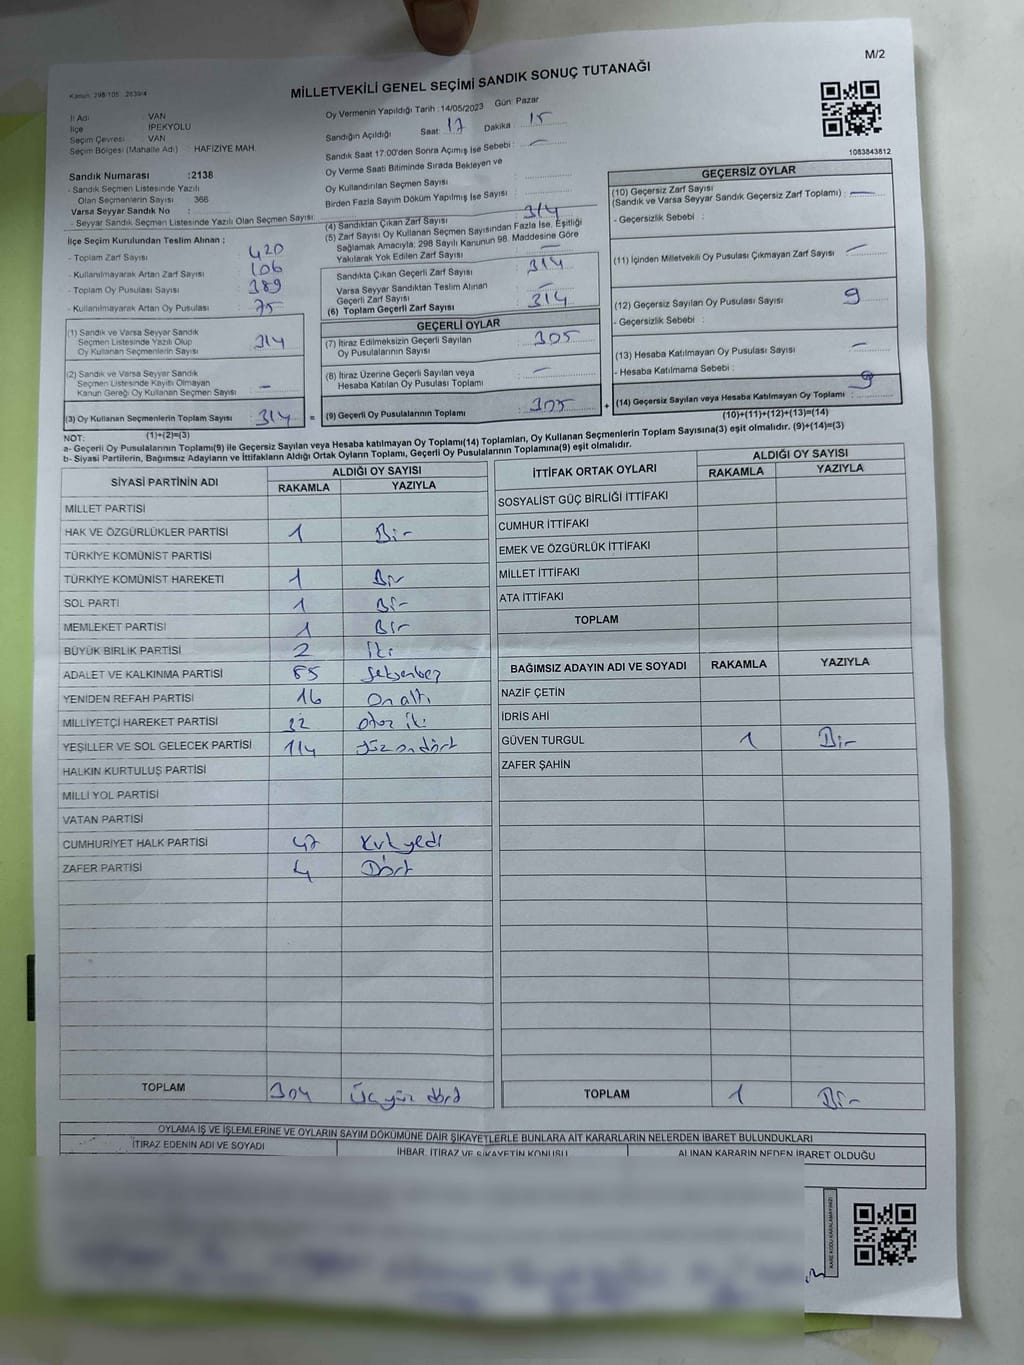 M/2
Kanun: 298/105 2839/4
MİLLETVEKİLİ GENEL SEÇİMİ SANDIK SONUÇ TUTANAĞI
İl Adı : VAN
İlçe : İPEKYOLU
Seçim Çevresi : VAN
Seçim Bölgesi (Mahalle Adı) : HAFIZİYE MAH.
Sandık Numarası :2138
- Sandık Seçmen Listesinde Yazılı
Olan Seçmenlerin Sayısı 366
Varsa Seyyar Sandık No :
- Seyyar Sandık Seçmen Listesinde Yazılı Olan Seçmen Sayısı:
Oy Vermenin Yapıldığı Tarih :14/05/2023 Gün: Pazar
Sandığın Açıldığı Saat: 17 Dakika : 15
Sandık Saat 17:00'den Sonra Açımış İse Sebebi : —
Oy Verme Saati Bitiminde Sırada Bekleyen ve
Oy Kullandırılan Seçmen Sayısı :
Birden Fazla Sayım Döküm Yapılmış İse Sayısı :
1083843812
İlçe Seçim Kurulundan Teslim Alınan ;
- Toplam Zarf Sayısı : 420
- Kullanılmayarak Artan Zarf Sayısı : 106
- Toplam Oy Pusulası Sayısı : 389
- Kullanılmayarak Artan Oy Pusulası : 75
(1) Sandık ve Varsa Seyyar Sandık
Seçmen Listesinde Yazılı Olup
Oy Kullanan Seçmenlerin Sayısı : 314
(2) Sandık ve Varsa Seyyar Sandık
Seçmen Listesinde Kayıtlı Olmayan
Kanun Gereği Oy Kullanan Seçmen Sayısı : —
(3) Oy Kullanan Seçmenlerin Toplam Sayısı : 314
(1)+(2)=(3)
(4) Sandıktan Çıkan Zarf Sayısı : 314
(5) Zarf Sayısı Oy Kullanan Seçmen Sayısından Fazla İse, Eşitliği
Sağlamak Amacıyla, 298 Sayılı Kanunun 98. Maddesine Göre
Yakılarak Yok Edilen Zarf Sayısı : —
Sandıkta Çıkan Geçerli Zarf Sayısı : 314
Varsa Seyyar Sandıktan Teslim Alınan
Geçerli Zarf Sayısı : —
(6) Toplam Geçerli Zarf Sayısı : 314
=
GEÇERLİ OYLAR
(7) İtiraz Edilmeksizin Geçerli Sayılan
Oy Pusulalarının Sayısı : 305
(8) İtiraz Üzerine Geçerli Sayılan veya
Hesaba Katılan Oy Pusulası Toplamı : —
(9) Geçerli Oy Pusulalarının Toplamı : 305
+
GEÇERSİZ OYLAR
(10) Geçersiz Zarf Sayısı
(Sandık ve Varsa Seyyar Sandık Geçersiz Zarf Toplamı) : —
- Geçersizlik Sebebi :
(11) İçinden Milletvekili Oy Pusulası Çıkmayan Zarf Sayısı : —
(12) Geçersiz Sayılan Oy Pusulası Sayısı : 9
- Geçersizlik Sebebi :
(13) Hesaba Katılmayan Oy Pusulası Sayısı : —
- Hesaba Katılmama Sebebi :
(14) Geçersiz Sayılan veya Hesaba Katılmayan Oy Toplamı : 9
(10)+(11)+(12)+(13)=(14)
NOT:
a- Geçerli Oy Pusulalarının Toplamı(9) ile Geçersiz Sayılan veya Hesaba katılmayan Oy Toplamı(14) Toplamları, Oy Kullanan Seçmenlerin Toplam Sayısına(3) eşit olmalıdır. (9)+(14)=(3)
b- Siyasi Partilerin, Bağımsız Adayların ve İttifakların Aldığı Ortak Oyların Toplamı, Geçerli Oy Pusulalarının Toplamına(9) eşit olmalıdır.
SİYASİ PARTİNİN ADI ALDIĞI OY SAYISI
RAKAMLA YAZIYLA
MİLLET PARTİSİ
HAK VE ÖZGÜRLÜKLER PARTİSİ 1 Bir
TÜRKİYE KOMÜNİST PARTİSİ
TÜRKİYE KOMÜNİST HAREKETİ 1 Bir
SOL PARTİ 1 Bir
MEMLEKET PARTİSİ 1 Bir
BÜYÜK BİRLİK PARTİSİ 2 İki
ADALET VE KALKINMA PARTİSİ 85 Seksenbeş
YENİDEN REFAH PARTİSİ 16 On altı
MİLLİYETÇİ HAREKET PARTİSİ 32 otuz iki
YEŞİLLER VE SOL GELECEK PARTİSİ 114 Yüz on dört
HALKIN KURTULUŞ PARTİSİ
MİLLİ YOL PARTİSİ
VATAN PARTİSİ
CUMHURİYET HALK PARTİSİ 47 Kırk yedi
ZAFER PARTİSİ 4 Dört
TOPLAM 304 Üç yüz dört
İTTİFAK ORTAK OYLARI ALDIĞI OY SAYISI
RAKAMLA YAZIYLA
SOSYALİST GÜÇ BİRLİĞİ İTTİFAKI
CUMHUR İTTİFAKI
EMEK VE ÖZGÜRLÜK İTTİFAKI
MİLLET İTTİFAKI
ATA İTTİFAKI
TOPLAM
BAĞIMSIZ ADAYIN ADI VE SOYADI RAKAMLA YAZIYLA
NAZİF ÇETİN
İDRİS AHİ
GÜVEN TURGUL 1 Bir
ZAFER ŞAHİN
TOPLAM 1 Bir
OYLAMA İŞ VE İŞLEMLERİNE VE OYLARIN SAYIM DÖKÜMÜNE DAİR ŞİKAYETLERLE BUNLARA AİT KARARLARIN NELERDEN İBARET BULUNDUKLARI
İTİRAZ EDENİN ADI VE SOYADI İHBAR, İTİRAZ VE ŞİKAYETİN KONUSU ALINAN KARARIN NEDEN İBARET OLDUĞU
KARE KODU KARALAMAYINIZ!